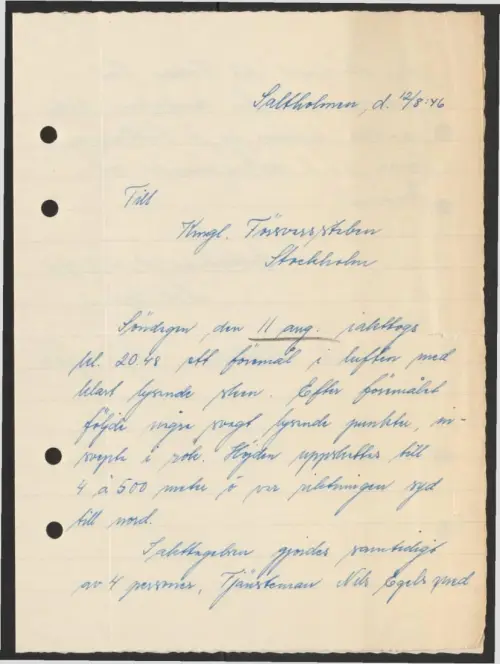 Saltholmen, d. 12/8.46
Till
Kungl. Försvarsstaben
Stockholm
Söndagen den 11 aug. iakttogs
kl. 20.48 ett föremål i luften med
klart lysande sken. Efter föremålet
följde några svagt lysande punkter, in-
svepta i rök. Höjden uppskattas till
4 à 500 meter o var riktningen syd
till nord.
Iakttagelsen gjordes samtidigt
av 4 personer, Tjänsteman Nils